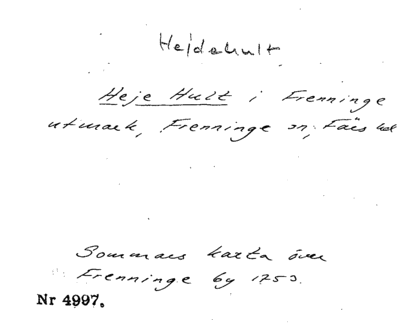 Hejdehult
Heje Hult i Frenninge
utmark, Frenninge sn; Färs hd
Sommars karta över
Frenninge by 1753.
Nr 4997.